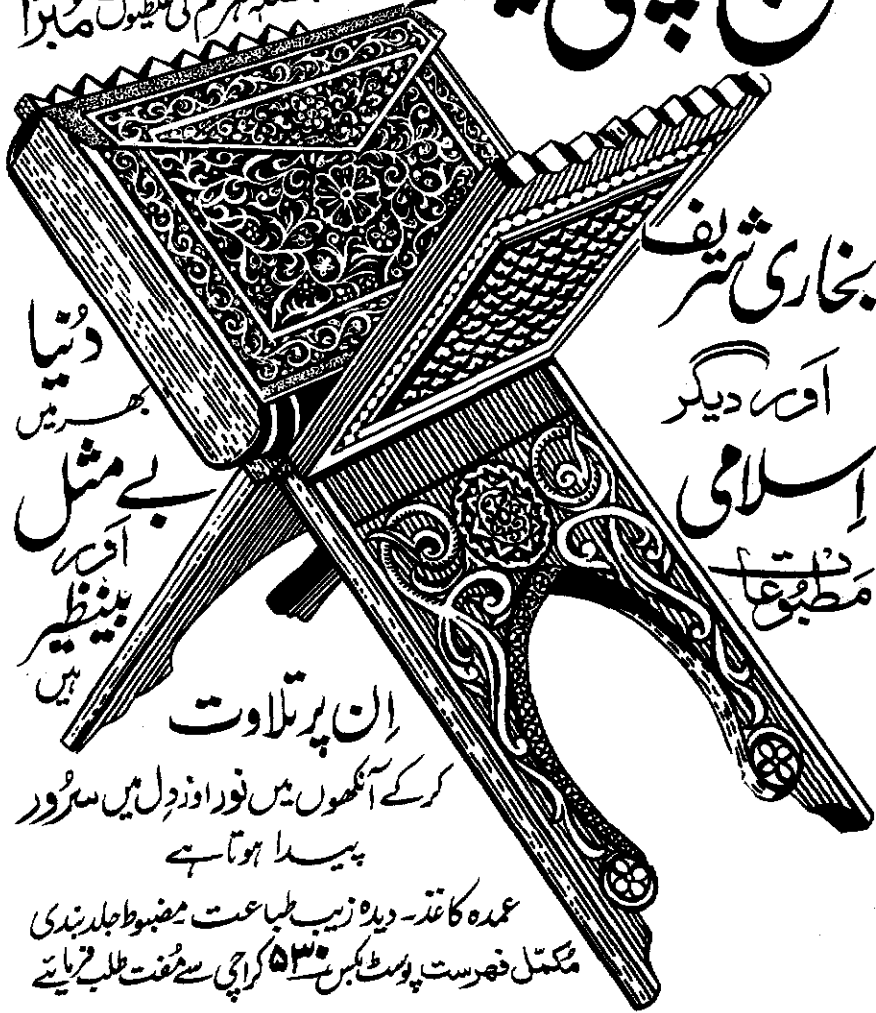 کی غلطیوں مبرا
بخاری شریف
اور دیگر
اسلامی
مطبوعات
دُنیا
بھر میں
بے مثل
اور
بینظیر
ہیں
اِن پر تلاوت
کر کے آنکھوں میں نور اور دِل میں سرُور
پیدا ہوتا ہے
عمدہ کاغذ۔ دیدہ زیب طباعت مضبوط جلد بندی
مکمّل فہرست پوسٹ بکس ۵۳۰ کراچی سے مُفت طلب فرمایئے